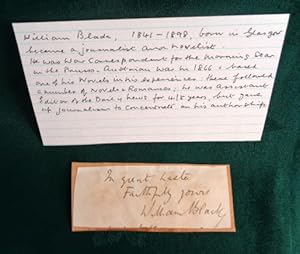 William Black, 1841-1898, born in Glasgow
became a journalist and novelist.
He was War Correspondent for the Morning Star
in the Prusso-Austrian War in 1866 & based
one of his Novels on his experiences. There followed
a number of Novels & Romances; he was Assistant
Editor of the Daily News for 4/5 years, but gave
up journalism to concentrate on his authorship.
In great haste
Faithfully yours
William Black